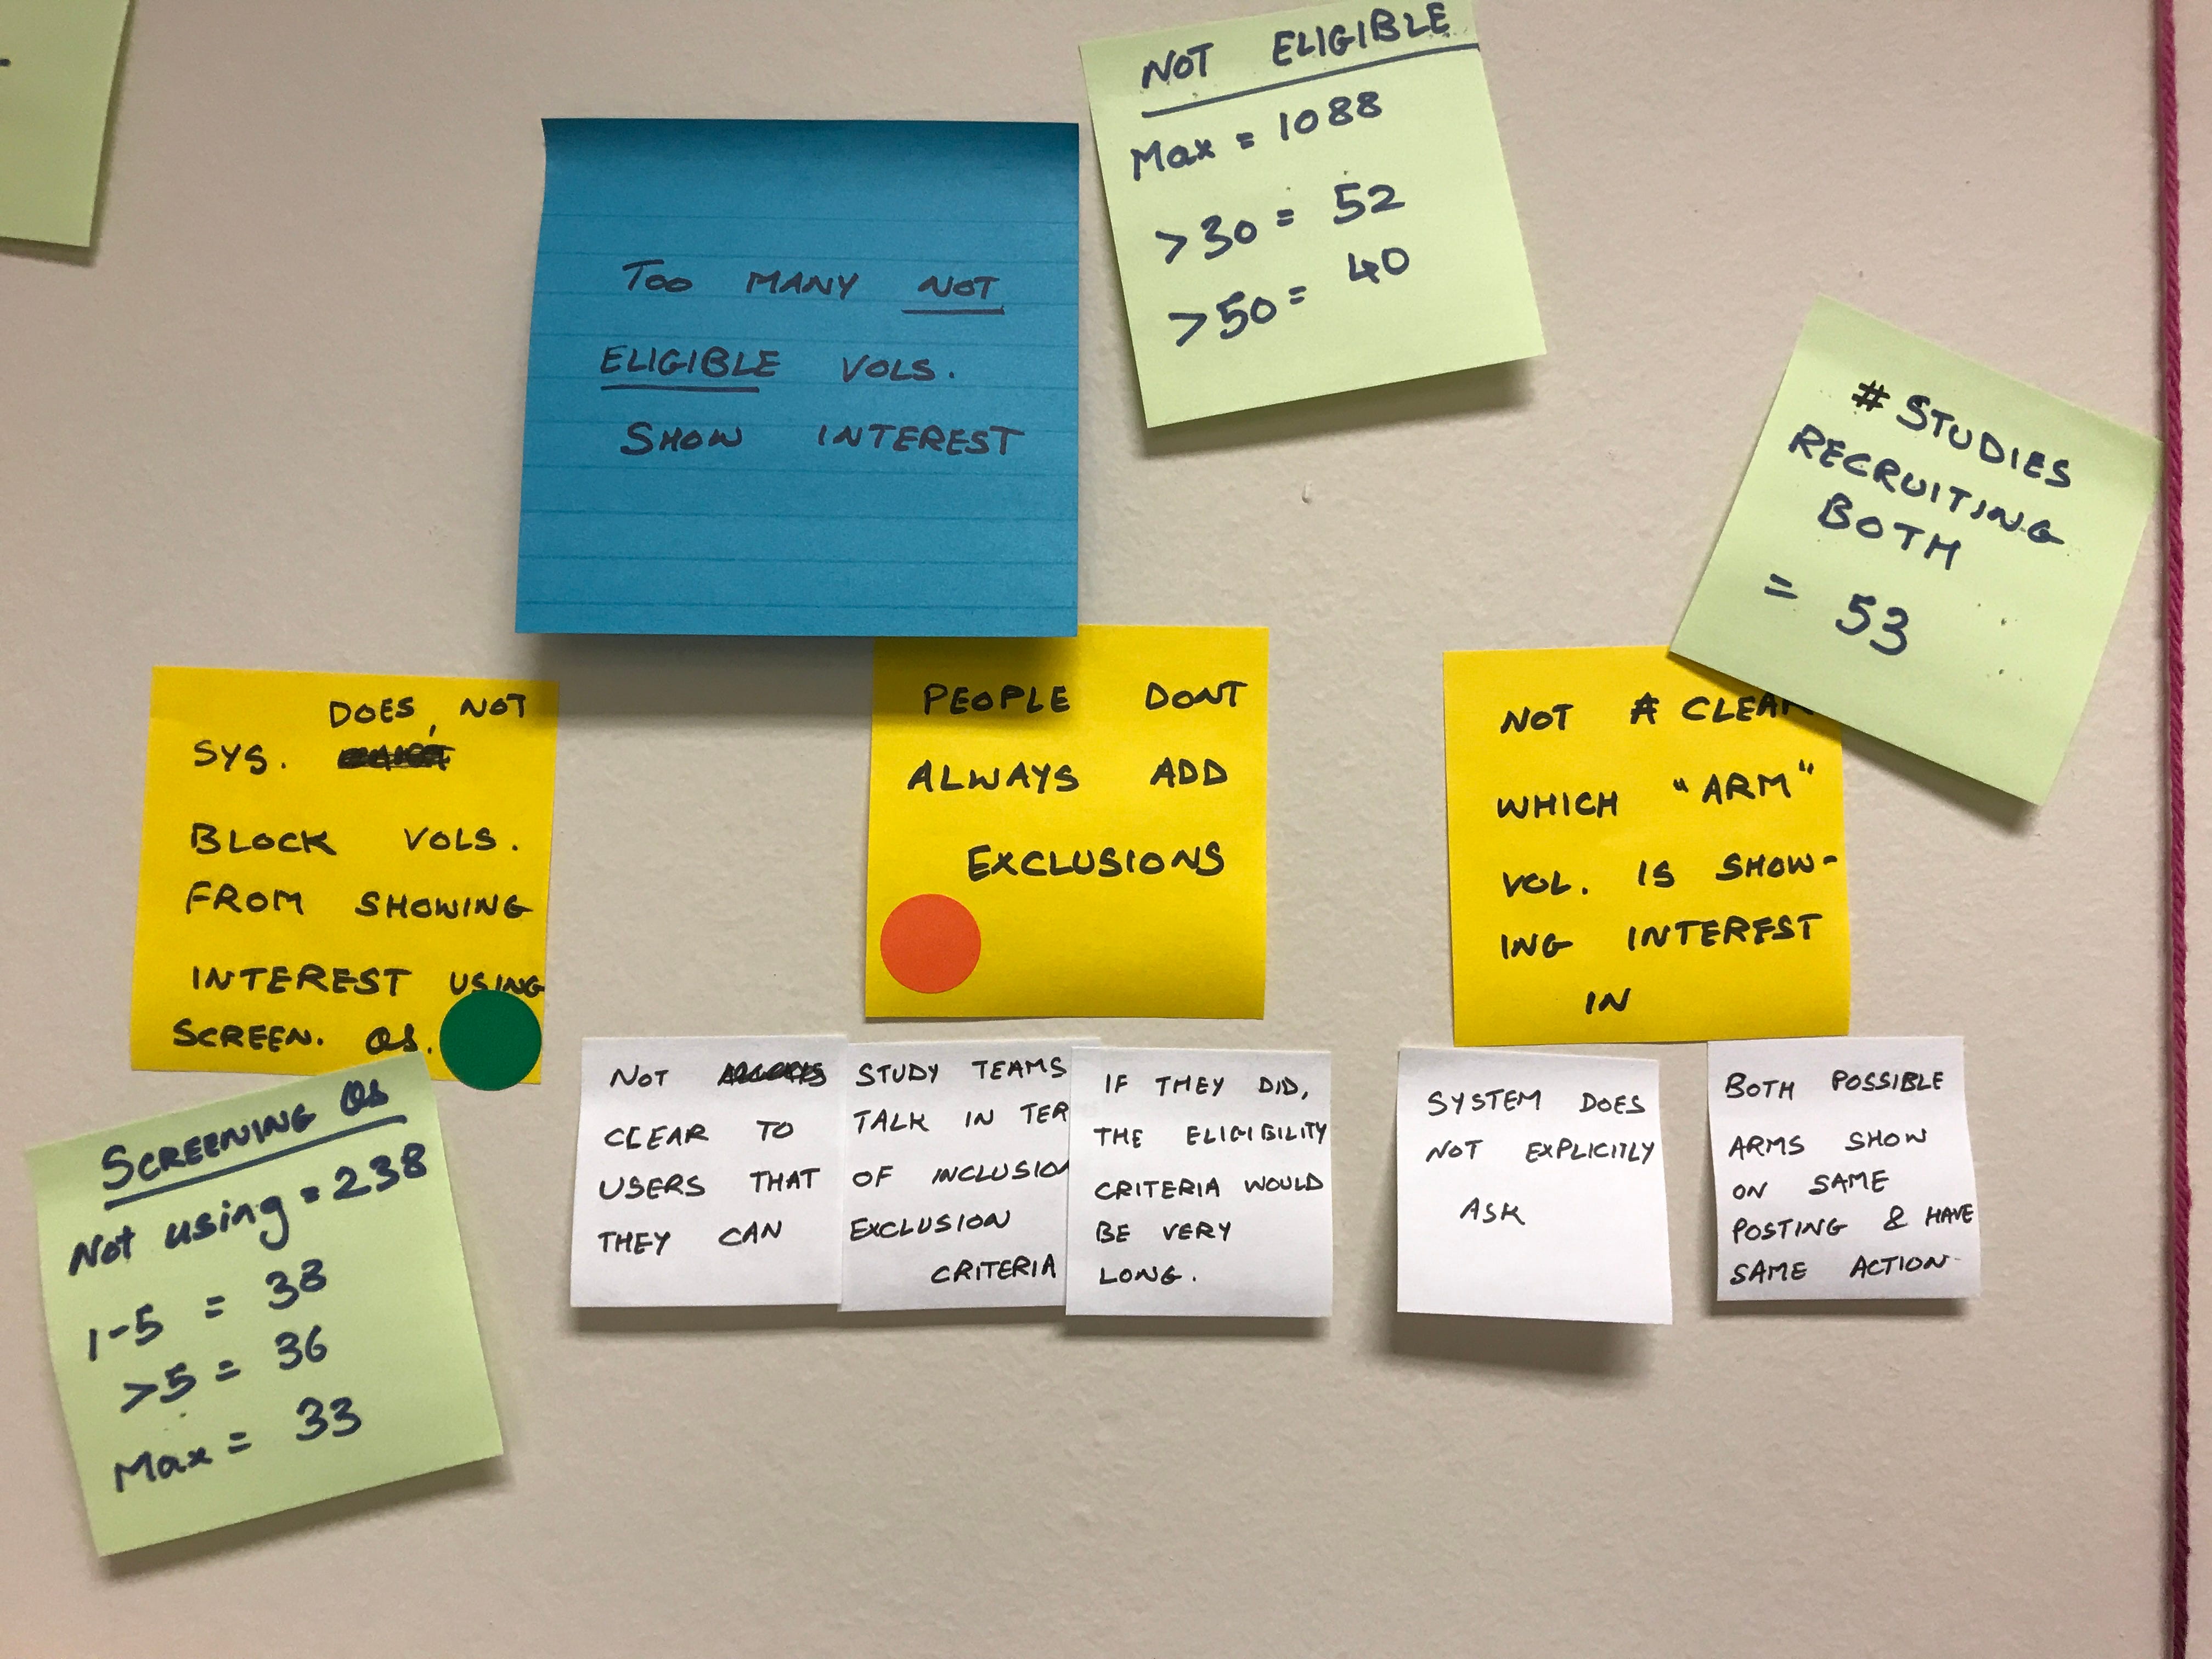 NOT ELIGIBLE
Max = 1088
>30 = 52
>50 = 40
TOO MANY NOT
ELIGIBLE VOLS.
SHOW INTEREST
# STUDIES
RECRUITING
BOTH
= 53
DOES, NOT
SYS.
BLOCK VOLS.
FROM SHOWING
INTEREST USING
SCREEN. QS.
PEOPLE DONT
ALWAYS ADD
EXCLUSIONS
NOT A CLEAR
WHICH "ARM"
VOL. IS SHOW-
ING INTEREST
IN
SCREENING QS
Not using = 238
1-5 = 38
>5 = 36
Max = 33
NOT
CLEAR TO
USERS THAT
THEY CAN
STUDY TEAMS
TALK IN TER
OF INCLUSION
EXCLUSION
CRITERIA
IF THEY DID,
THE ELIGIBILITY
CRITERIA WOULD
BE VERY
LONG.
SYSTEM DOES
NOT EXPLICITLY
ASK
BOTH POSSIBLE
ARMS SHOW
ON SAME
POSTING & HAVE
SAME ACTION